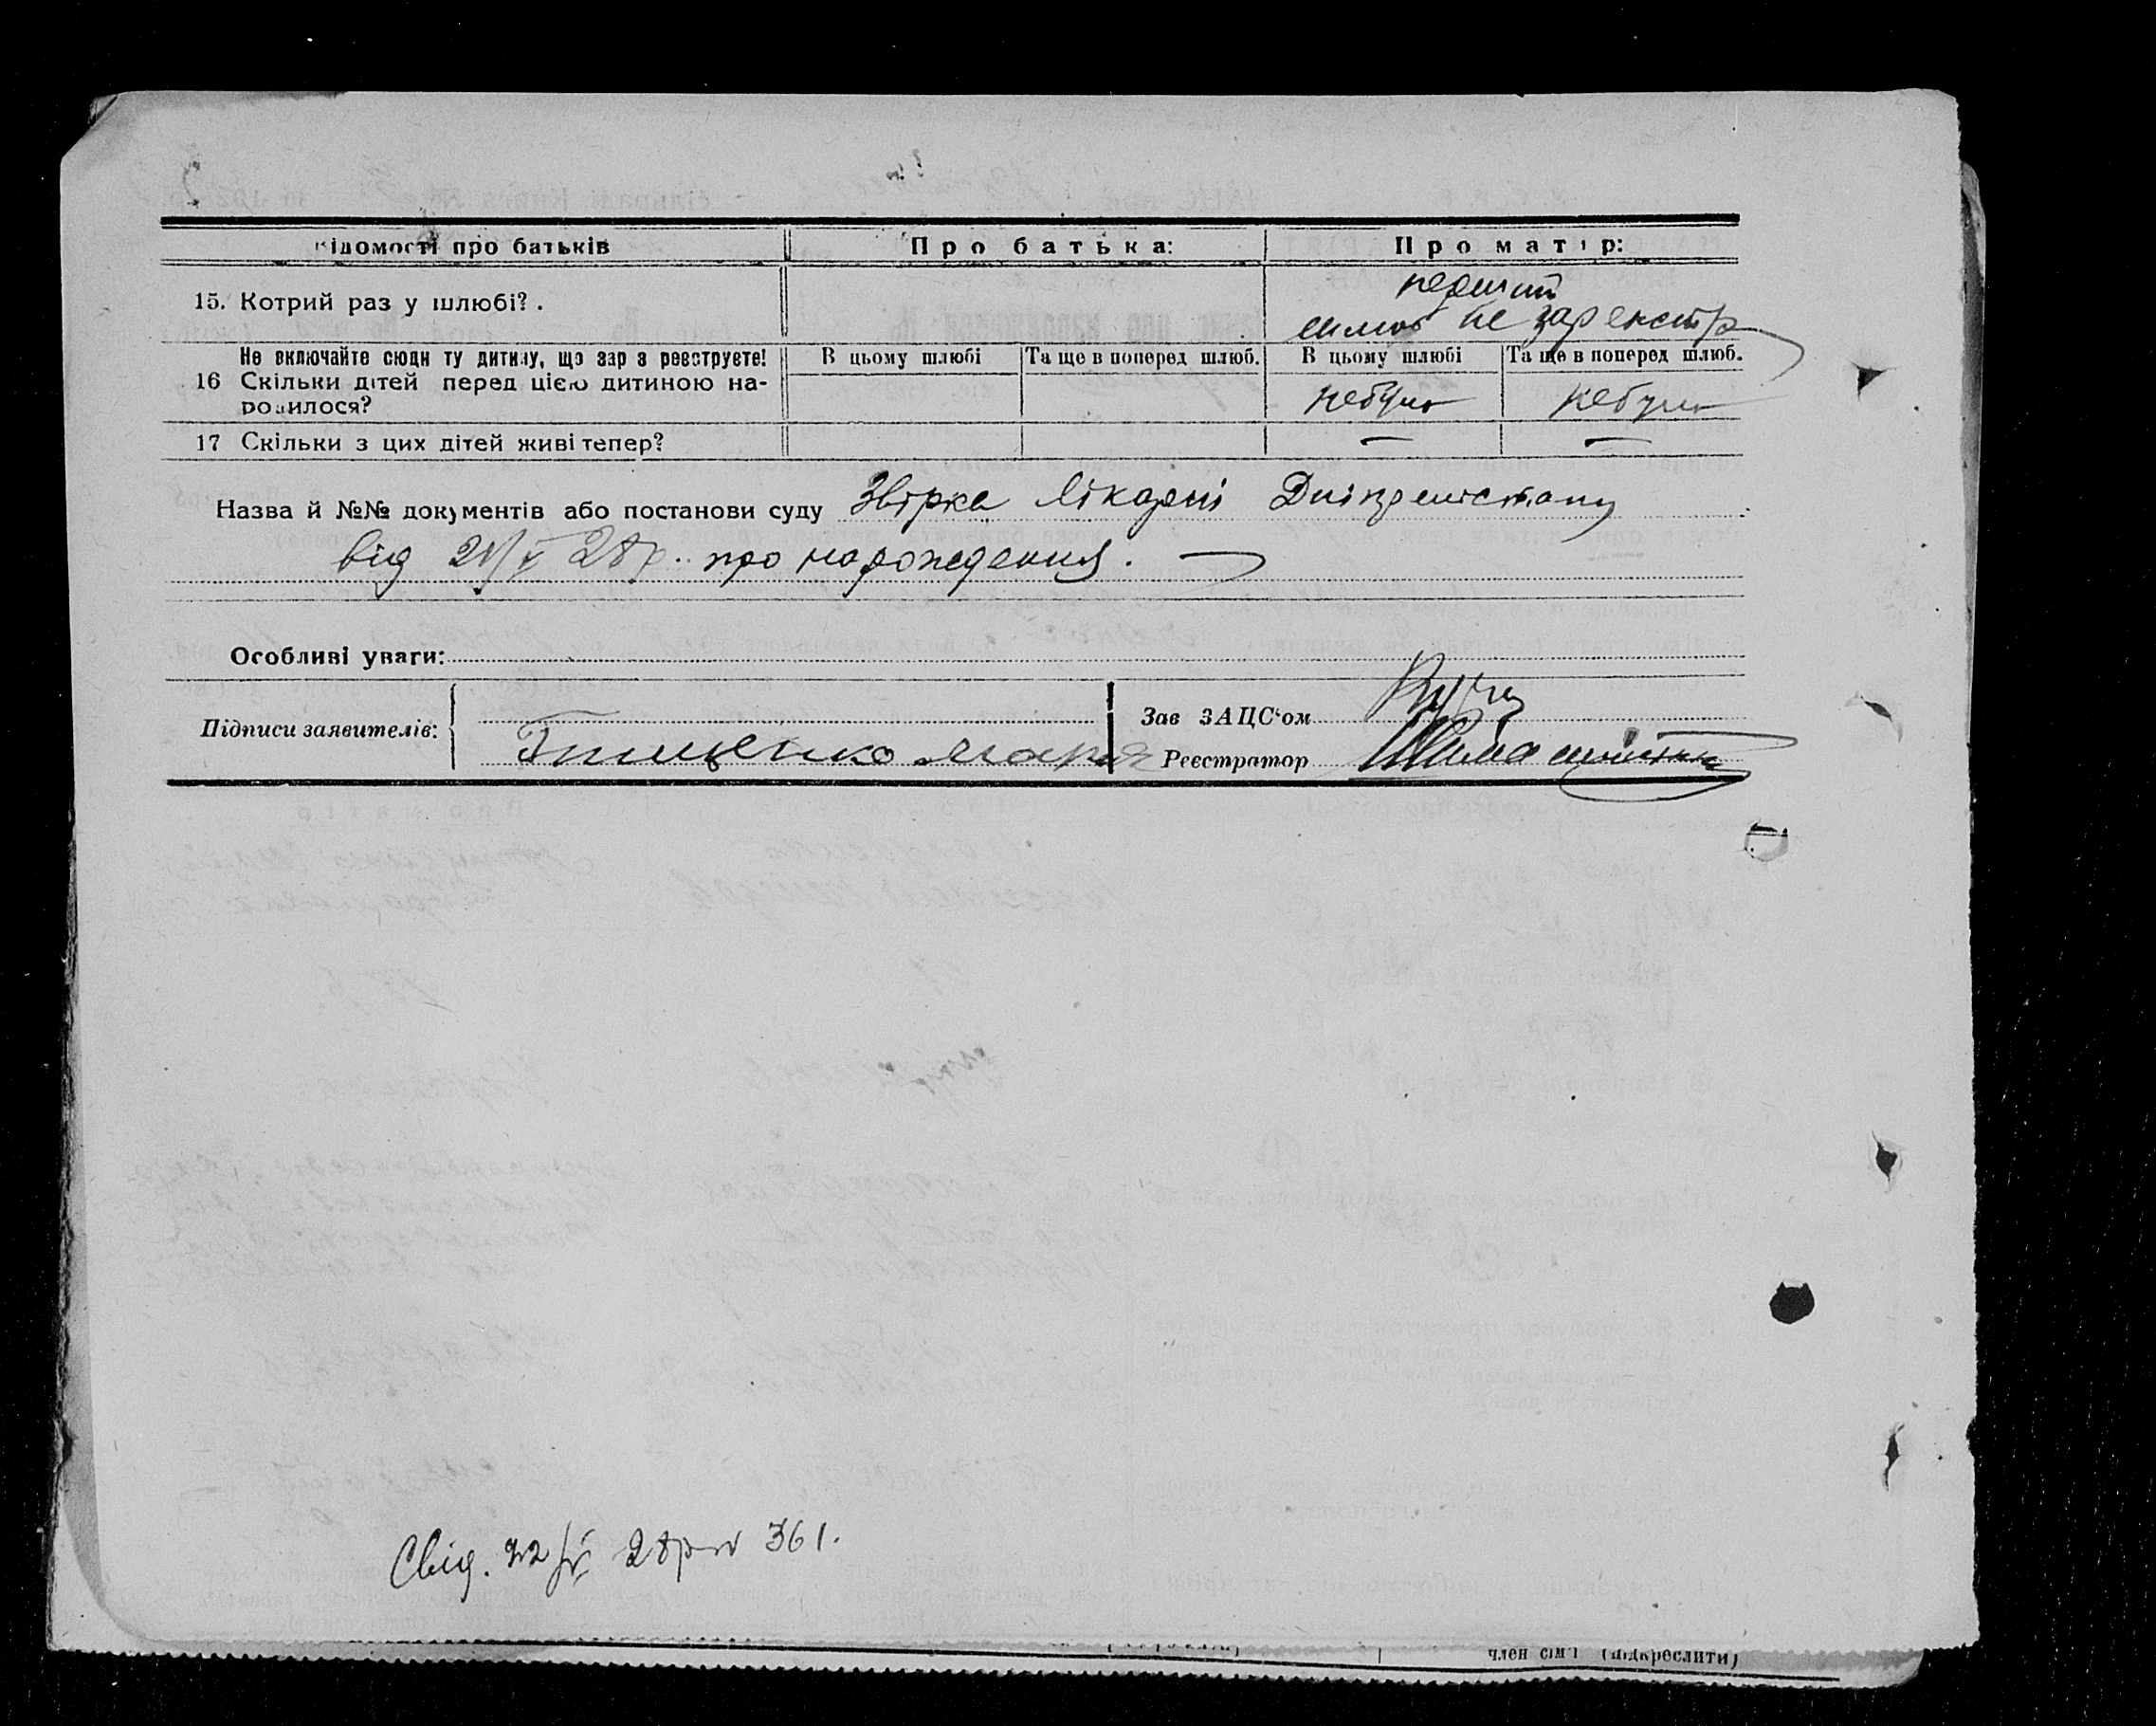 Відомості про батьків Про батька: Про матір:
15. Котрий раз у шлюбі? . перший
не зареистр
Не включайте сюди ту дитину, що зараз реєструєте! В цьому шлюбі Та ще в поперед шлюб. В цьому шлюбі Та ще в поперед шлюб.
16 Скільки дітей перед цією дитиною на-
родилося? небуло небуло
17 Скільки з цих дітей живі тепер? — —
Назва й №№ документів або постанови суду лікарні
від 21/V 28р. про народження.
Особливі уваги:
Підписи заявителів: Зав ЗАЦС'ом
Марія Реєстратор
Свід. 22/V 28р № 361.
член сім'ї (підкреслити)